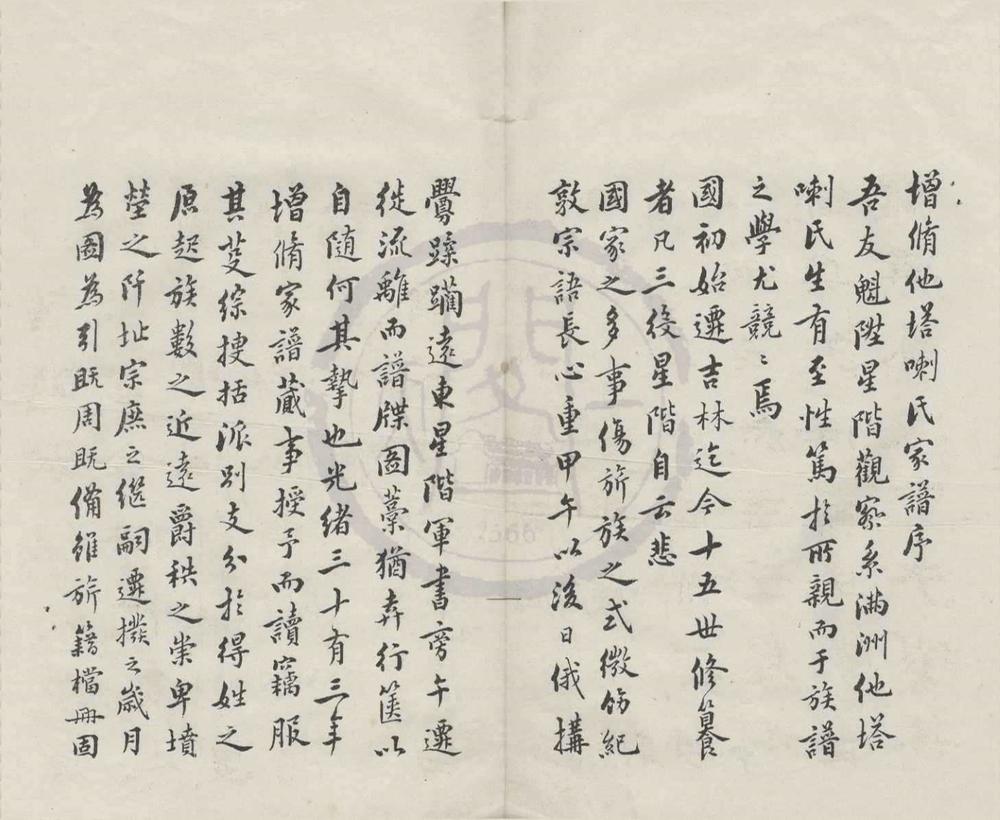 增脩他塔喇氏家譜序
吾友魁陞星階觀察系滿洲他塔
喇氏生有至性篤於所親而于族譜
之學尤競〻焉
國初始遷吉林迄今十五世修纂
者凡三役星階自云悲
國家之多事傷旂族之式微飭紀
敦宗語長心重甲午以後日俄搆
釁蹂躪遼東星階軍書旁午遷
徙流離而譜牒圖藁猶弆行篋以
自隨何其摯也光緒三十有三年
增脩家譜蕆事授予而讀竊服
其蒐綜摟括派別支分於得姓之
原起族數之近遠爵秩之崇卑墳
塋之阡址宗庶之繼嗣遷撥之歲月
為圖為引既周既備雖旂籍檔冊固
1566